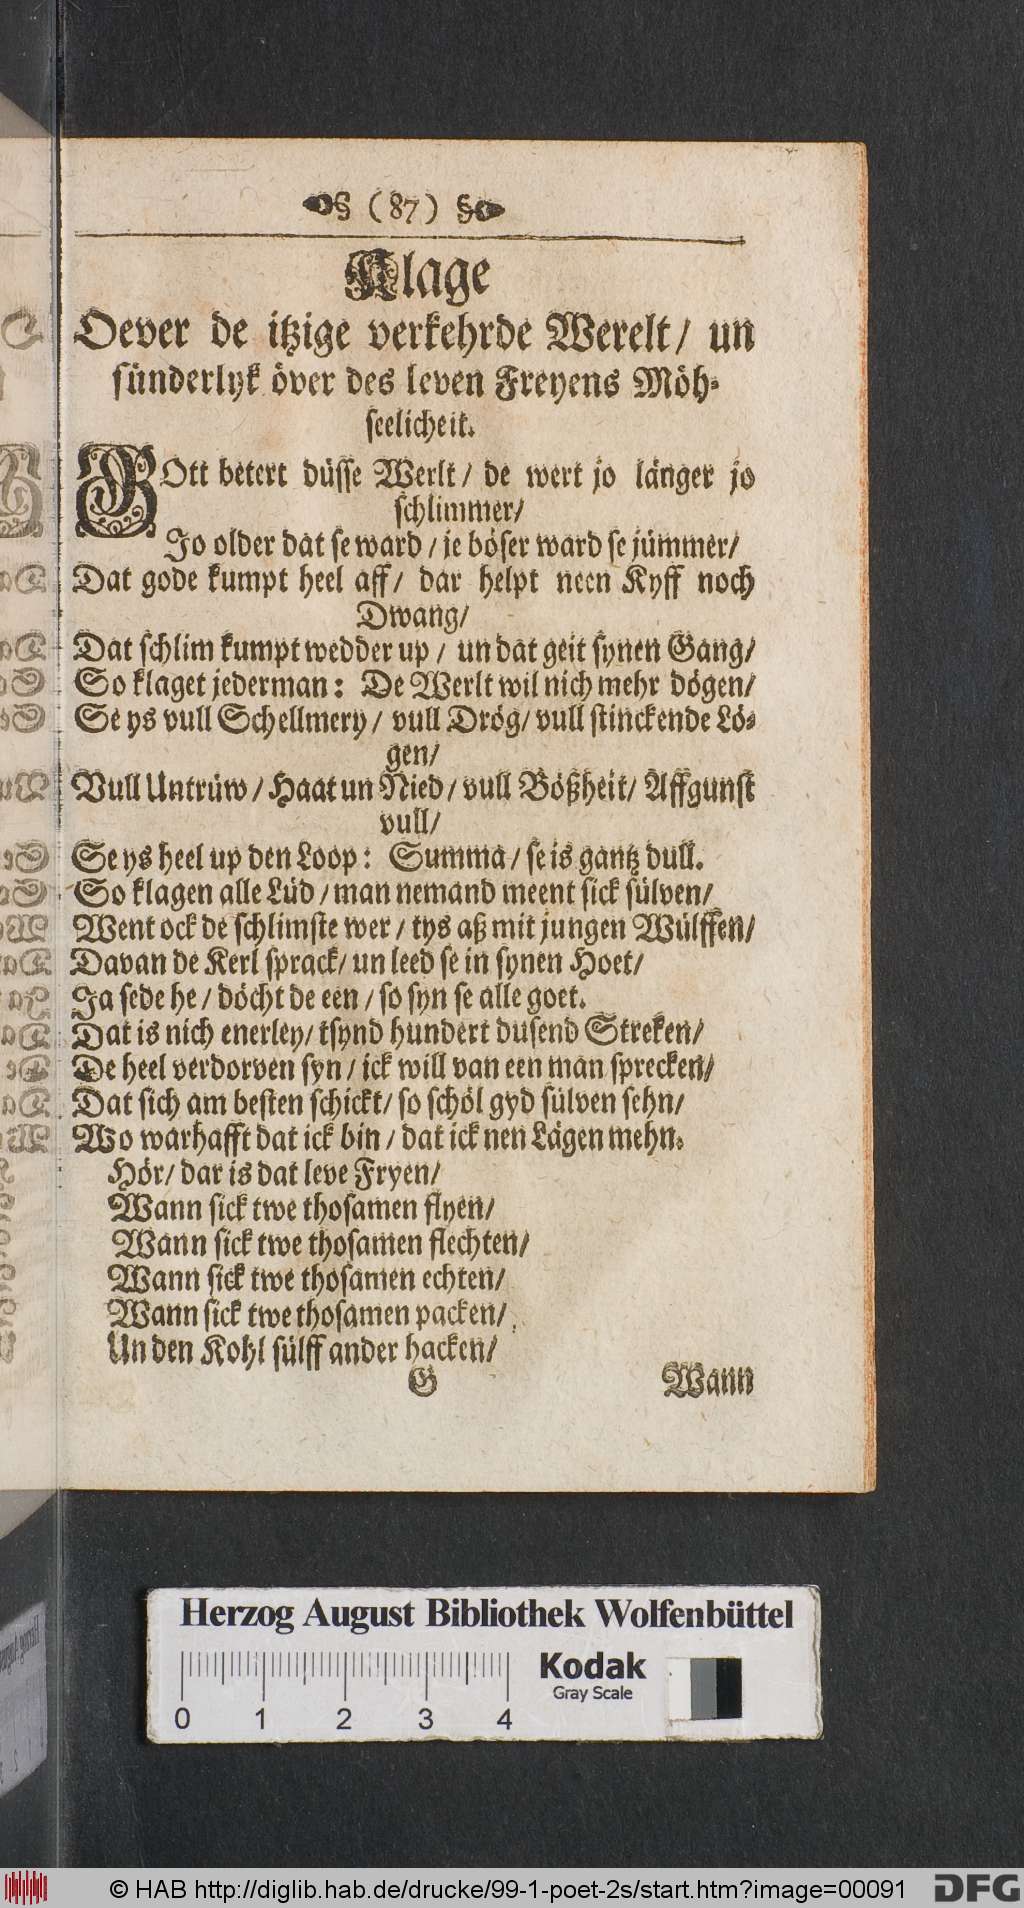 (87)
Klage
Oever de itzige verkehrde Werelt/ un
sünderlyk över des leven Freyens Möh-
seelicheit.
GOtt betert düsse Werlt/ de wert jo länger jo
schlimmer/
Jo older dat se ward/ je böser ward se jümmer/
Dat gode kumpt heel aff/ dar helpt neen Kyff noch
Dwang/
Dat schlim kumpt wedder up/ un dat geit synen Gang/
So klaget jederman: De Werlt wil nich mehr dögen/
Se ys vull Schellmery/ vull Drög/ vull stinckende Lö-
gen/
Vull Untrüw/ Haat un Nied/ vull Bößheit/ Affgunst
vull/
Se ys heel up den Loop: Summa/ se is gantz dull.
So klagen alle Lüd/ man nemand meent sick sülven/
Went ock de schlimste wer/ tys aß mit jungen Wülffen/
Davan de Kerl sprack/ un leed se in synen Hoet/
Ja sede he/ döcht de een/ so syn se alle goet.
Dat is nich enerley/ tsynd hundert dusend Streken/
De heel verdorven syn/ ick will van een man sprecken/
Dat sich am besten schickt/ so schöl gyd sülven sehn/
Wo warhafft dat ick bin/ dat ick nen Lägen mehn.
Hör/ dar is dat leve Fryen/
Wann sick twe thosamen flyen/
Wann sick twe thosamen flechten/
Wann sick twe thosamen echten/
Wann sick twe thosamen packen/
Un den Kohl sülff ander hacken/
G Wann
Herzog August Bibliothek Wolfenbüttel
Kodak
Gray Scale
0 1 2 3 4
© HAB http://diglib.hab.de/drucke/99-1-poet-2s/start.htm?image=00091
DFG